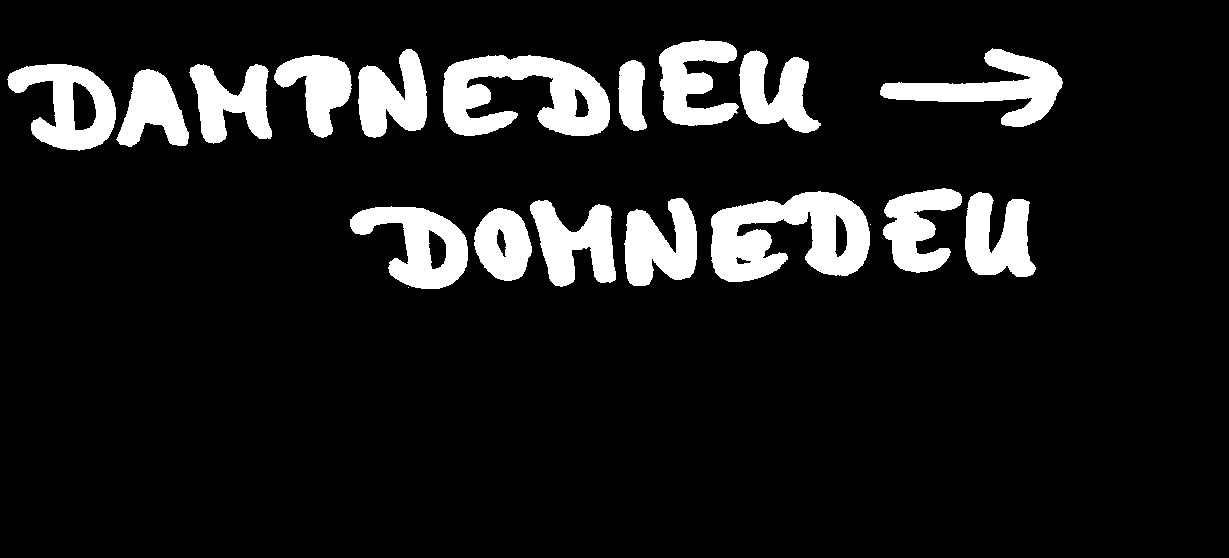 DAMPNEDIEU →
DOMNEDEU